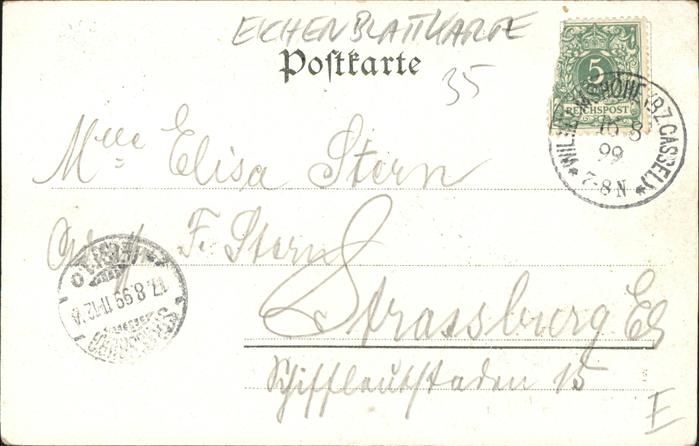 EICHENBLATTKARTE
Poſtkarte
35
5
REICHSPOST
WILHELMSHÖHE (BZ. CASSEL)
16 8
99
7-8 N
Mlle Elisa Stern
F. Stern
Strassburg Els
Schiffleutstaden 15
17. 8. 99. 11-12 V.
E